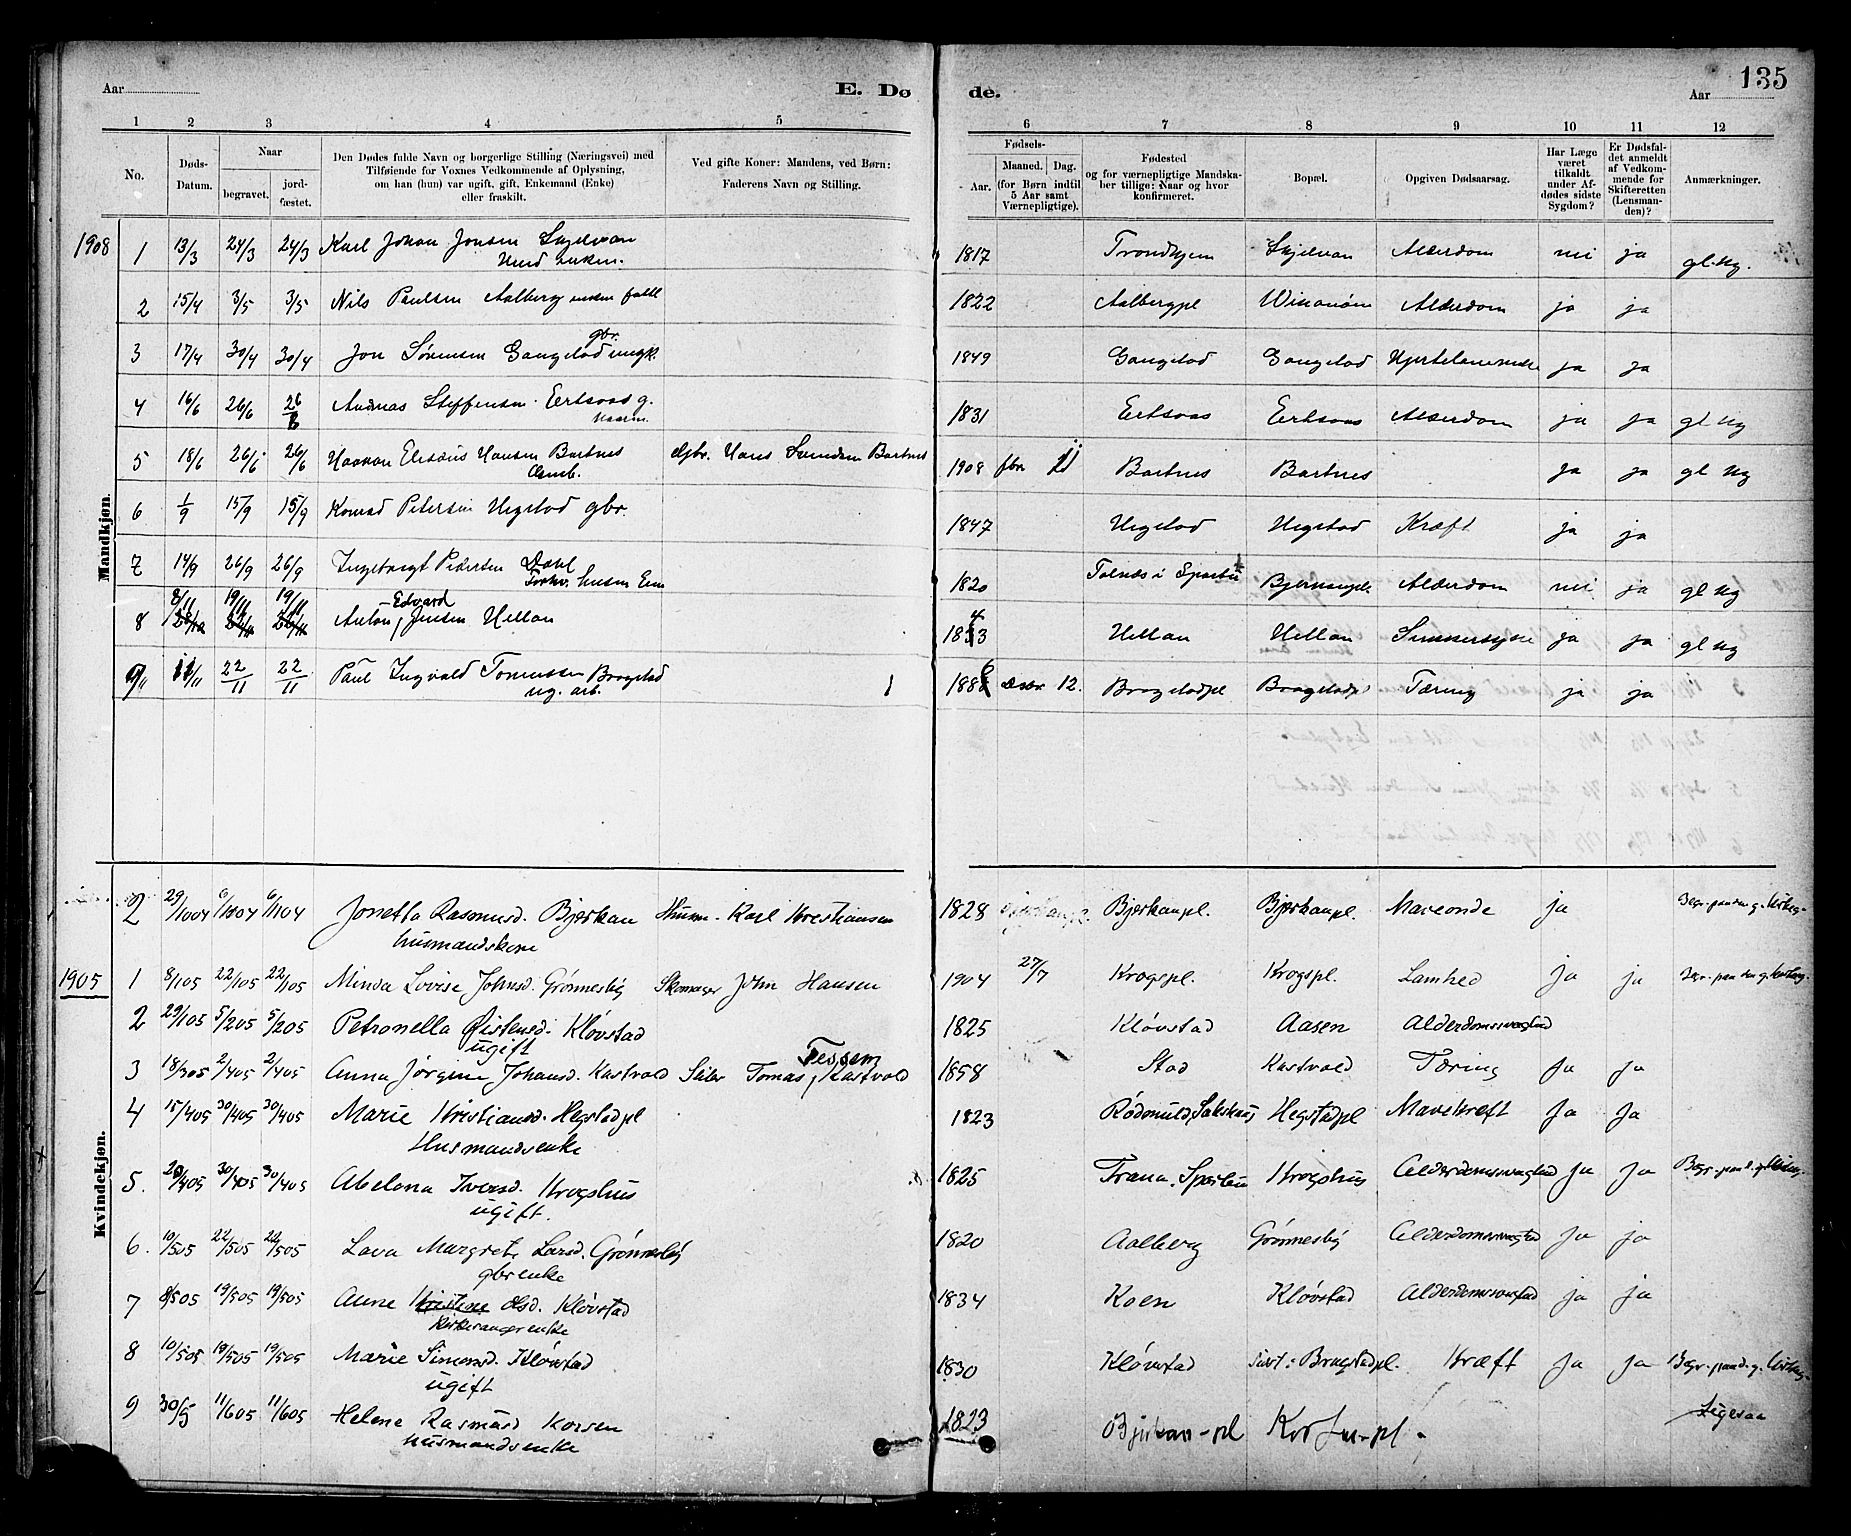 Aar
E. Dø
de.
Aar
135
1 2 3 4 5 6 7 8 9 10 11 12
No.
Døds-
Datum.
Naar
begravet.
jord-
fæstet.
Den Dødes fulde Navn og borgerlige Stilling (Næringsvei) med
Tilføiende for Voxnes Vedkommende af Oplysning,
om han (hun) var ugift, gift, Enkemand (Enke)
eller fraskilt.
Ved gifte Koner: Mandens, ved Børn:
Faderens Navn og Stilling.
Fødsels-
Aar.
Maaned.
Dag.
(for Børn indtil
5 Aar samt
Værnepligtige).
Fødested
og for værnepligtige Mandska-
ber tillige: Naar og hvor
konfirmeret.
Bopæl.
Opgiven Dødsaarsag.
Har Læge
været
tilkaldt
under Af-
dødes sidste
Sygdom?
Er Dødsfal-
det anmeldt
af Vedkom-
mende for
Skifteretten
(Lensman-
den)?
Anmærkninger.
Mandkjøn.
1908 1 13/3 24/3 24/3 Karl Johan Jonsen Skjelvan 1817 Trondhjem Skjelvan Alderdom nei ja gl. ug.
2 15/4 3/5 3/5 Nils Paulsen Aalberg 1822 Aalbergpl Alderdom ja ja
gbr.
3 17/4 30/4 30/4 Jon Sørensen Gangstad ungk. 1849 Gangstad Gangstad Hjertelammelse ja ja
4 16/6 26/6 26/6 Andreas Steffensen Eertsaas g. 1831 Eertsaas Eertsaas Alderdom ja ja gl ug
5 18/6 26/6 26/6 Haakon Elisæus Hansen Bartnes Gbr. Hans Bartnes 1908 fbr 11 Bartnes Bartnes ja ja gl ug
6 1/9 15/9 15/9 Konrad Petersen Hegstad gbr. 1847 Hegstad Hegstad Kræft ja ja
7 14/9 26/9 26/9 Ingebrigt Pedersen Dahl 1820 Tolnæs i Sparbu Bjerkanpl. Alderdom nei ja gl ug
8/11 19/11 19/11 Edvard
8 Anton, Jensen Hellan 1843 Hellan Hellan ja ja gl ug
9 11/11 22/11 22/11 Paul Ingvald Tomassen Bragstad 1 1886 Decbr 12. Bragstadpl Bragstadpl Tæring ja ja
ug. arb.
Kvindekjøn.
2 29/1004 6/1104 6/1104 Jonetta Rasmusd. Bjerkan Husm. Karl Kristiansen 1828 Bjerkanpl. Bjerkanpl. Maveonde ja Begr. paa den g. kirkeg.
husmandskone
1905 1 8/105 22/105 22/105 Minda Lovise Johnsd. Grønnesby Skomager John Hansen 1904 27/7 Krogspl. Krogspl. Lamhed ja ja Begr. paa den g. kirkeg.
2 29/105 5/205 5/205 Petronella Øistensd. Kløvstad 1825 Kløvstad Aasen Alderdomssvaghed
ugift
Tessem
3 18/305 2/405 2/405 Anna Jørgine Johansd. Kastvold Tomas, Kastvold 1858 Stad Kastvold Tæring Ja Ja
4 15/405 30/405 30/405 Marie Kristiansd. Hegstadpl 1823 Hegstadpl Mavekreft Ja Ja
Husmandsenke
5. 20/405 30/405 30/405 Abelona Iversd. Krogshus 1825 Trana, Sparbu Krogshus Alderdomssvaghed Ja Ja Begr. paa d. g. kirkeg.
ugift.
6. 10/505 22/505 22/505 Lava Margrete Larsd. Grønnesby 1820 Aalberg Grønnesby Alderdomssvaghed Ja ja
gbrenke
7 8/505 19/505 19/505 Anne Kristine Olsd. Kløvstad 1834 Koen Kløvstad Alderdomssvaghed ja ja
Kirkesangerenke
8 10/505 19/505 19/505 Marie Simonsd. Kløvstad 1830 Kløvstad sidst: Bragstadpl. Kræft Ja Ja Begr. paa d. g. kirkeg.
ugift
9 30/5 11/605 11/605 Helene Rasmusd Korsen 1823 Bjerkan-pl Ligesaa
husmandsenke